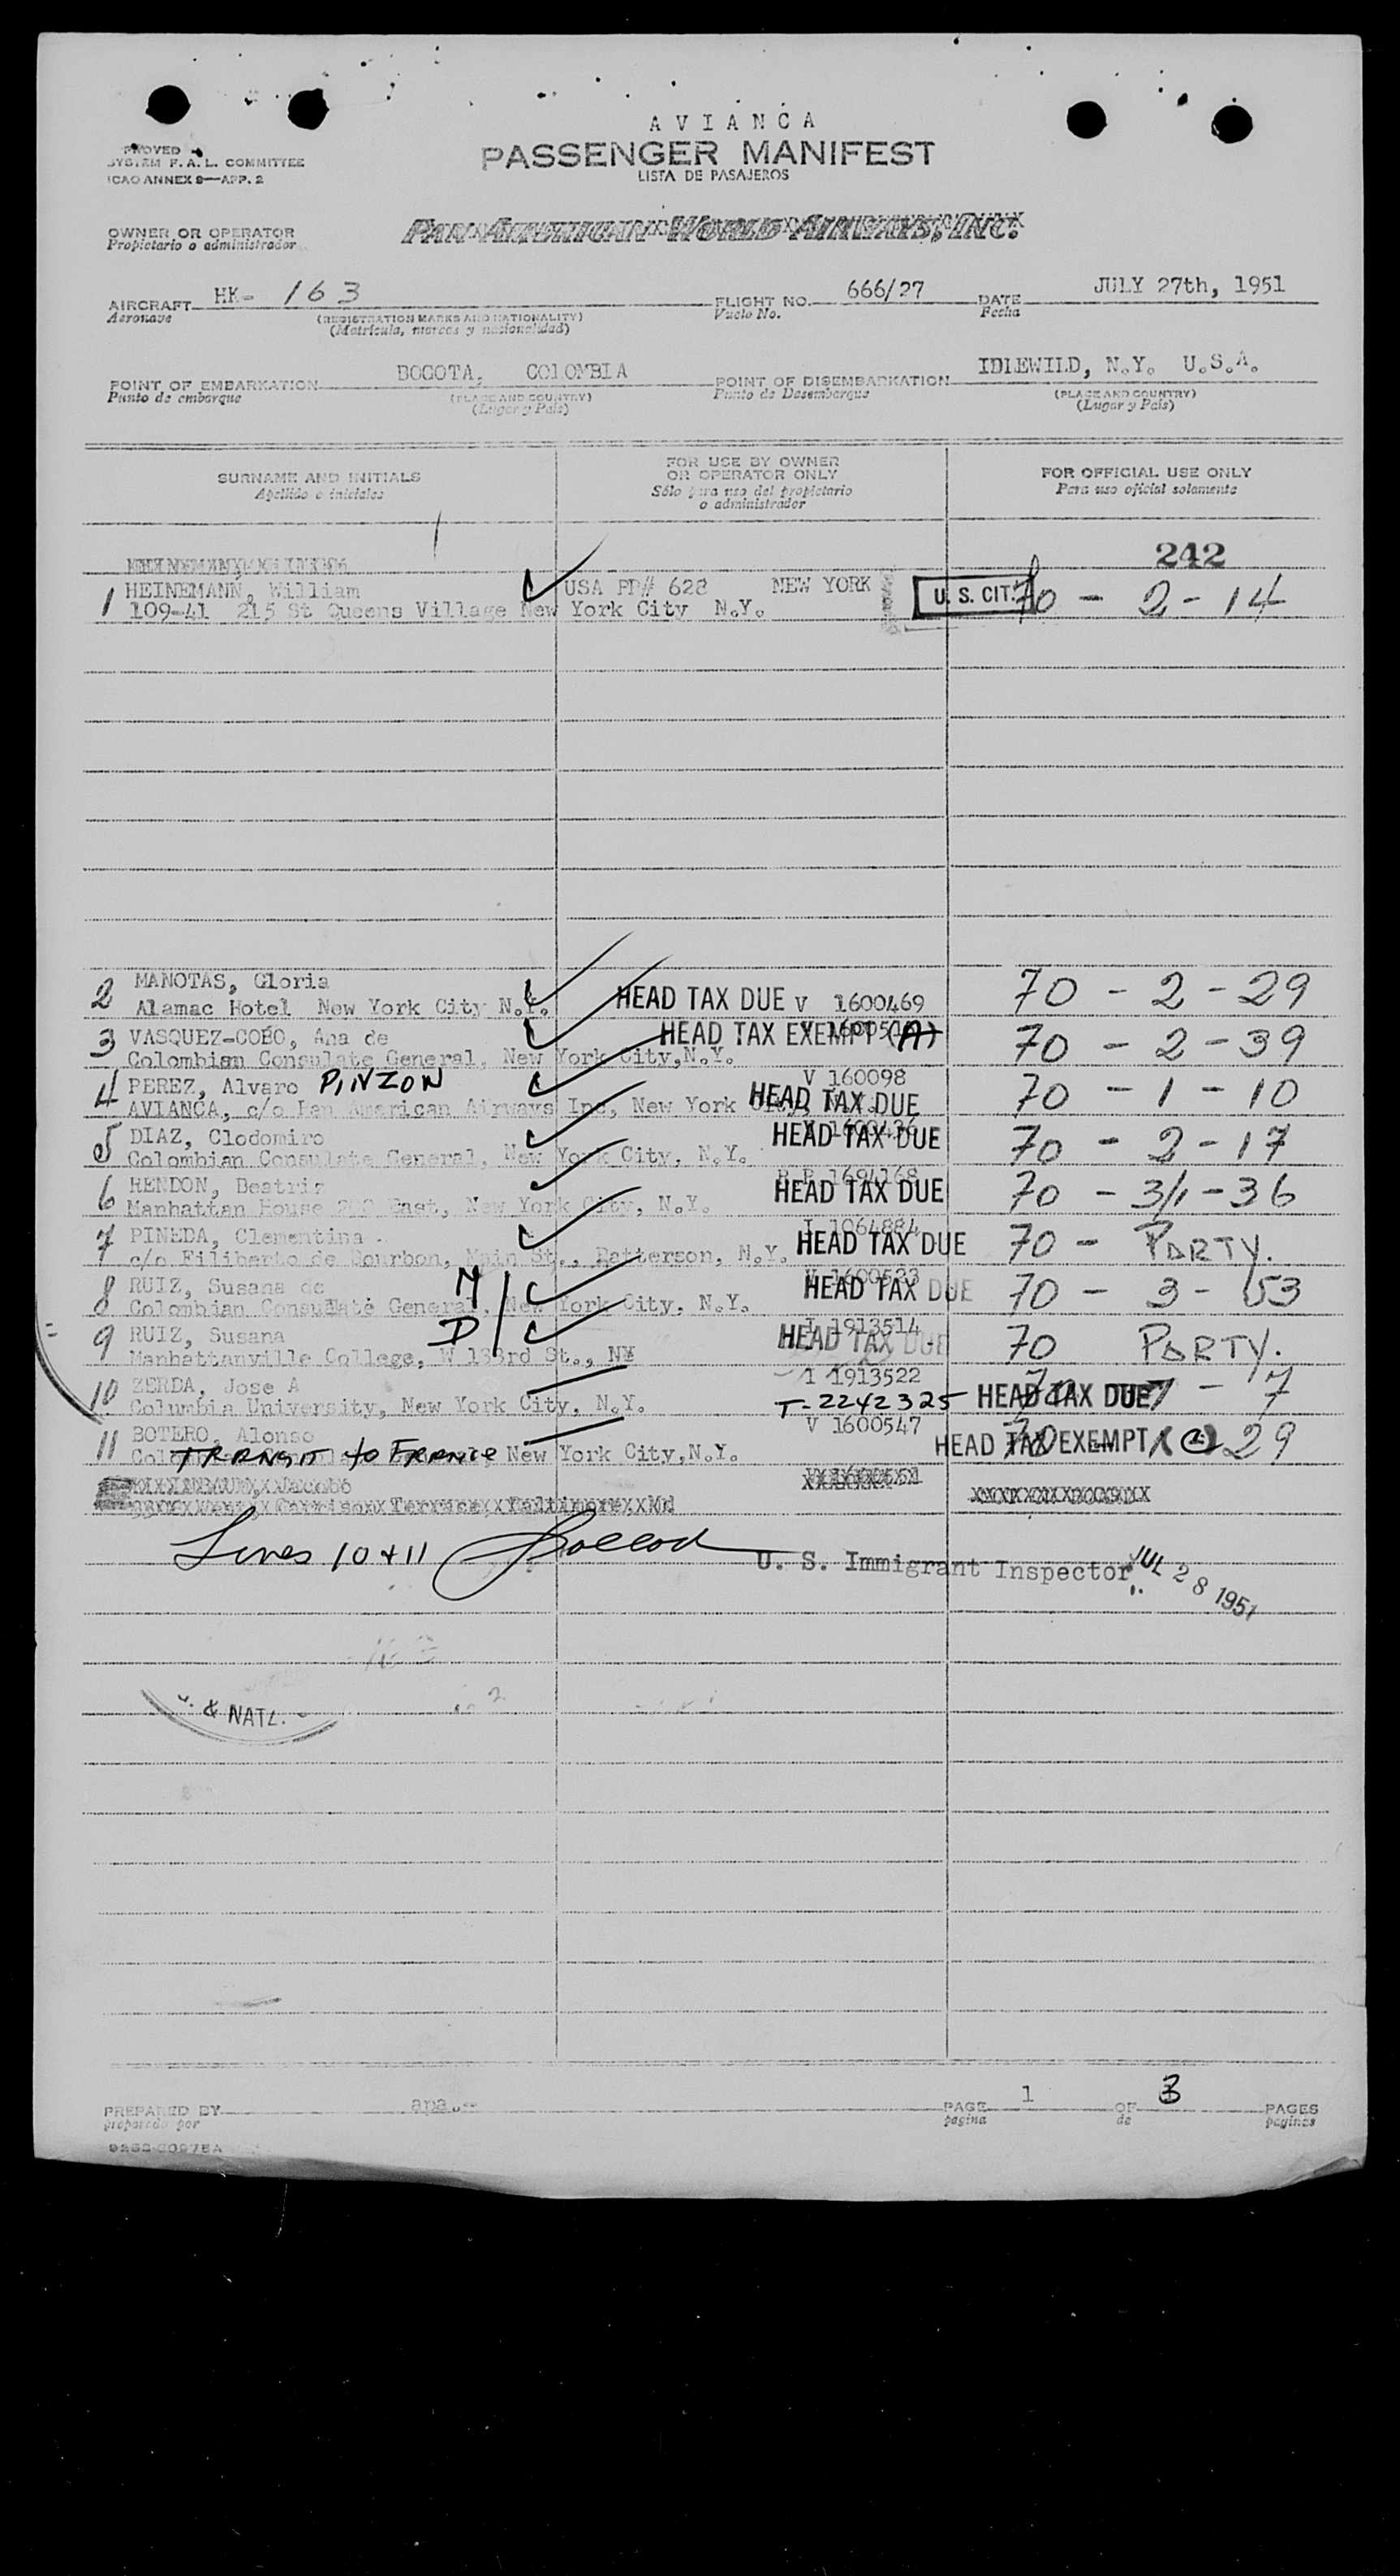 AVIANCA
PASSENGER MANIFEST
LISTA DE PASAJEROS
SYSTEM F.A.L. COMMITTEE
ICAO ANNEX 9—APP. 2
OWNER OR OPERATOR
Propietario o administrador
PAN AMERICAN WORLD AIRWAYS, INC.
AIRCRAFT HK- 163 FLIGHT NO. 666/27 DATE JULY 27th, 1951
Aeronave (REGISTRATION MARKS AND NATIONALITY) Vuelo No. Fecha
(Matrícula, marcas y nacionalidad)
POINT OF EMBARKATION BOGOTA, COLOMBIA POINT OF DISEMBARKATION IDLEWILD, N.Y. U.S.A.
Punto de embarque (PLACE AND COUNTRY) Punto de Desembarque (PLACE AND COUNTRY)
(Lugar y País) (Lugar y País)
SURNAME AND INITIALS FOR USE BY OWNER OR OPERATOR ONLY FOR OFFICIAL USE ONLY
Apellido e iniciales Sólo para uso del propietario o administrador Para uso oficial solamente
242
1 HEINEMANN, William USA PP# 628 NEW YORK U. S. CIT. 70 - 2 - 14
109-41 215 St Queens Village New York City N.Y.
2 MANOTAS, Gloria 70 - 2 - 29
Alamac Hotel New York City N.Y. HEAD TAX DUE V 1600469
3 VASQUEZ-COBO, Ana de HEAD TAX EXEMPT (A) 70 - 2 - 39
Colombian Consulate General, New York City, N.Y.
4 PEREZ, Alvaro PINZON V 160098 70 - 1 - 10
AVIANCA, c/o Pan American Airways Inc, New York HEAD TAX DUE
5 DIAZ, Clodomiro HEAD TAX DUE 70 - 2 - 17
Colombian Consulate General, New York City, N.Y.
6 RENDON, Beatriz R.P. 1694168 HEAD TAX DUE 70 - 3/1 - 36
Manhattan House East, New York City, N.Y.
7 PINEDA, Clementina I 1064884 HEAD TAX DUE 70 - PARTY.
c/o Filiberto de Bourbon, Main St., Patterson, N.Y.
8 RUIZ, Susana de M V 1600533 HEAD TAX DUE 70 - 3 - 53
Colombian Consulate General, New York City, N.Y.
9 RUIZ, Susana D I 1913514 HEAD TAX DUE 70 PARTY.
Manhattanville College, W 133rd St., NY
10 ZERDA, Jose A I 1913522 HEAD TAX DUE 7
Columbia University, New York City, N.Y. T-2242325
11 BOTERO, Alonso V 1600547 HEAD TAX EXEMPT 29
TRANSIT to FRANCE New York City, N.Y.
Jacobo
West Garrison Terrace Baltimore Md
Lines 10 + 11 U. S. Immigrant Inspector JUL 28 1951
& NATZ.
PREPARED BY apa.- PAGE 1 OF 3 PAGES
preparado por pagina de paginas